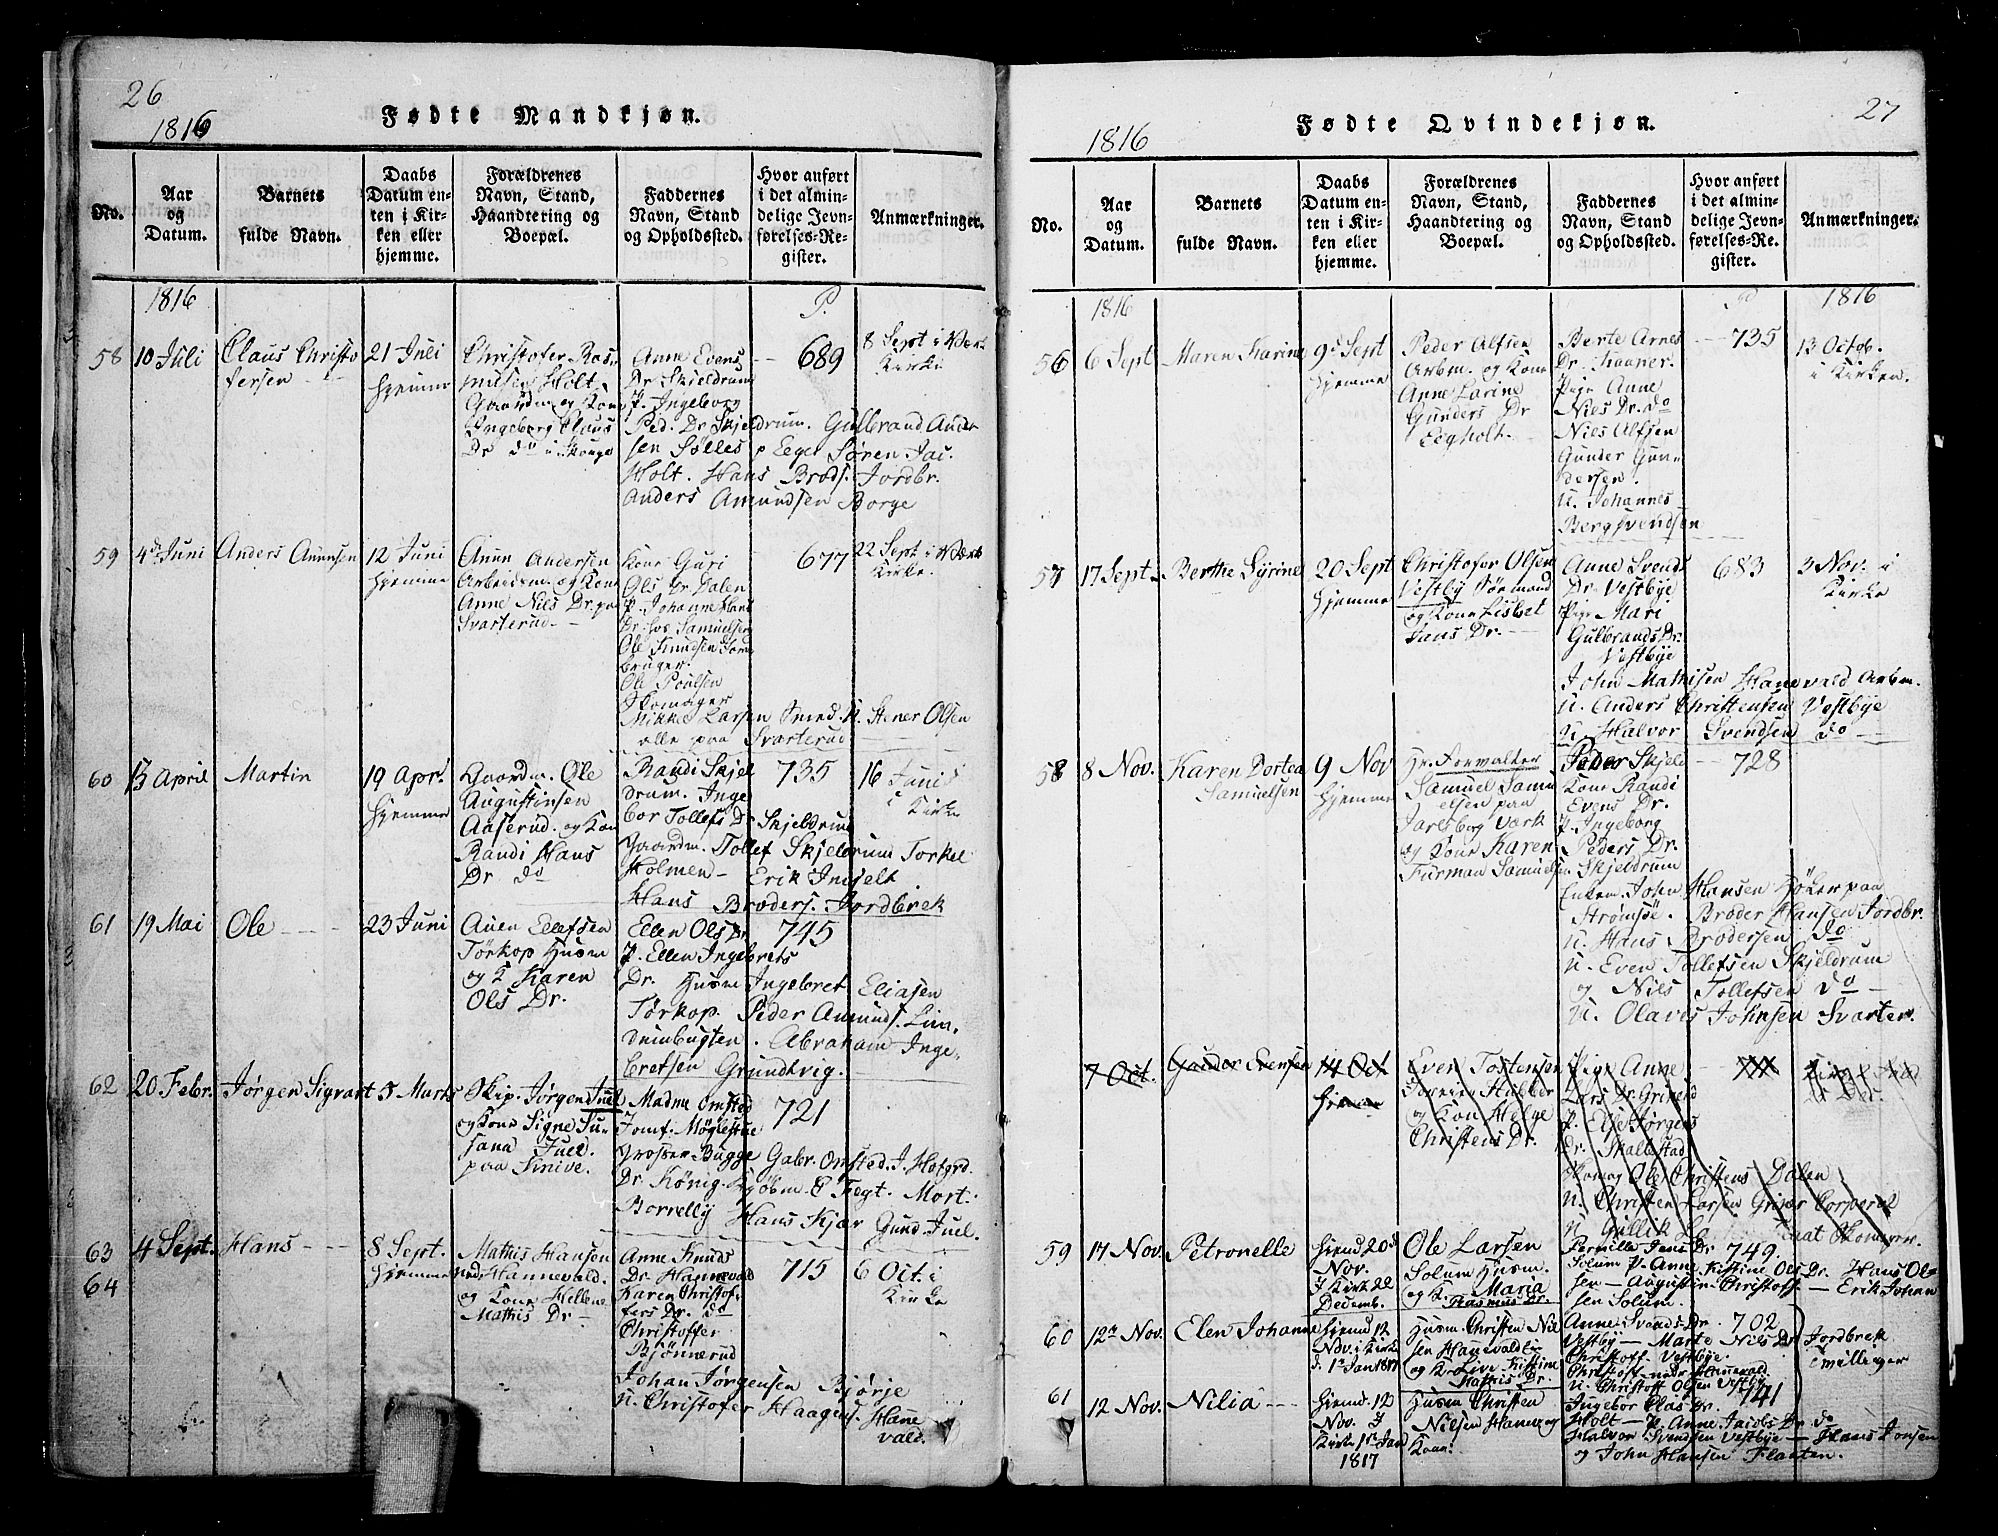 26
1816
Fødte Mandkjøn.
No.
Aar
og
Datum.
Barnets
fulde Navn.
Daabs
Datum en-
ten i Kir-
ken eller
hjemme.
Forældrenes
Navn, Stand,
Haandtering og
Boepæl.
Faddernes
Navn, Stand
og Opholdssted.
Hvor anført
i det almin-
delige Jevn-
førelses-Re-
gister.
Anmærkninger.
1816
P.
58
10 Juli
Claus Christo
fersen
21 Juli
Hjemme
Christofer Ras-
musen Holt
Gaardm og Kone
Ingeborg Claus
Dr do i Skouge
Anne Evens
Dr Skjeldrum
P. Ingeborg
Ped. Dr Skjeldrum. Gulbrand Ander
sen Solles p Eger Søren Jac.
Holt. Hans Brods. Jordbr.
Anders Amundsen Borge
689
8 Sept i Værk
Kirke
59
4de Juni
Anders Aunnsen
12 Juni
Hjemme
Aunn Andersen
Arbeidsm og Kone
Anne Nils Dr. paa
Svarterud
Kone Guri
Ols Dr Dalen
P. Johanne Hans
Dr hos Samuelsen
Ole Knudsen Jord
bruger.
Ole Poulsen
Skomager
Mikkel Larsen Smed. U. Stener Olsen
alle paa Svarterud
677
22 Sept i Værk
Kirke.
60
15 April
Martin
19 Apr.
Hjemme
Gaardm. Ole
Augustinsen
Aaserud. og Kone
Randi Hans
Dr do
Randi Skjel
drum. Inge
bor Tollefs Dr Skjeldrum
Gaardm. Tollef Skjeldrum Torkel
Holmen – Erik Ingelt
Hans Broders. Jordbrek
735
16 Juni
i
Kirke
61
19 Mai
Ole
23 Juni
Auen Ellefsen
Torkop Husm
og K Karen
Ols Dr.
Ellen Ols Dr.
P. Ellen Ingebrets
Dr. Husm Ingebret Eliasen
Torkop. Peder Amunds. Lin-
drumbugten. Abraham Inge-
bretsen Grundtvig.
745
62
20 Febr.
Jørgen Sigvart
5 Marts
Skip. Jørgen Juel
og Kone Signe Su-
sana Juel.
paa Knive.
Madme Omsted
Jomf. Møglestue
Grosser Bugge Gabr. Omsted. J. Hofgrd.
Dr. König. Kjøbm. E Tregt. Mort.
Borrelly Hans Kjær Gund. Juel.
721
63
64
4 Sept.
Hans
8 Sept.
Hjemme
Mathis Hansen
ned. Hannevald.
og Kone Hellene
Mathis Dr
Anne Knuds
Dr. Hannevald
Karen Christof-
fers Dr. do
Christoffer
Bjønnerud
Johan Jørgensen Bjørje
U. Christofer Haagens. Hane
vald.
715
6 Oct. i
Kirke
27
1816
Fødte Qvindekjøn.
No.
Aar
og
Datum.
Barnets
fulde Navn.
Daabs
Datum en-
ten i Kir-
ken eller
hjemme.
Forældrenes
Navn, Stand,
Haandtering og
Boepæl.
Faddernes
Navn, Stand
og Opholdssted.
Hvor anført
i det almin-
delige Jevn-
førelses-Re-
gister.
Anmærkninger.
1816
1816
56
6 Sept
Maren Karine
9de Sept
Hjemme
Peder Alfsen
Arbm. og Kone
Anne Larine
Gunders Dr
Eegholt.
Berte Arnes
Dr. Kaaner.
Pige Anne
Niels Dr. do
Niels Alfsen
Gunder Gun-
dersen.
U. Johannes
Bergsvendsen
735
13 Octob.
i Kirken.
57
17 Sept
Berthe Syrine
20 Sept
Hjemme
Christofor Olsen
Vestby Sørmand
og Kone Lisbet
Jans Dr.
Anne Svends
Dr. Vestbye
Pige Mari
Gulbrands Dr.
Vestbye
John Mathisen Hanevald Arbm.
U. Anders Christensen Vestbye
U. Halvor Svendsen do
683
3 Nov. i
Kirke
58
8 Nov.
Karen Dortea
Samuelsen
9 Nov
Hjemme
Hr. Forvalter
Samuel Samu
elsen paa
Jarlsberg Værk
og Kone Karen
Furman Samuelsen
Peder Skjeld
Kone Randi
Evens Dr.
P. Ingeborg
Peders Dr.
Skjeldrum
Enkem. John Hansen Høker paa
Strømsöe. Broder Hansen Jordbr.
U. Hans Brodersen do
U. Even Tollefsen Skjeldrum
og Nils Tollefsen do
U. Olaves Johnsen Svarter.
728
7 Oct.
Gunder Evensen
14 Oct
Hjemme
Even Tostensen
og Kone Helge
Christens Dr.
Pige Anne
Lars Dr. Grinerud
P. Else Jørgens
Dr. Skalbstad
Skomag Ole Christens Dalen
U. Christen Larsen Corporal
U. Gullik
59
17 Nov.
Petronelle
Hiemd 20de
Nov.
I Kirk 22
Decemb.
Ole Larsen
Solum Husm.
og K. Maria
Rasmus Dr.
Pernille Jens Dr
Solum P. Anne Kistine Ols Dr. Hans Ol-
sen – Augustin Christoff – Erik Johan
sen Solum.
749.
60
12te Nov.
Elen Johanne
Hiemd 12
Nov. i Kirke
d. 1st Jan 1817
Husm Christen Nil
sen Hanevald
og K. Live Kistine
Mathis Dr.
Anne Svends Dr.
Vestby – Marte Niels Dr
Christoff. Vestbye.
Christoff. nedr. Hanevald.
U. Christoff Olsen Vestbye
702
Jordbrek
Emillinger
61
12 Nov.
Nilia
Hiemd. 12
Nov. I
Kirke 1st Jan
1817
Husm Christen
Nielsen Hanev. og
Kone.
Ingebor Clas Dr.
Holt – P. Anne Jacobs Dr. do
Halvor Svendsen Vestbye – Hans Jonsen
og John Hansen Flaaten.
741